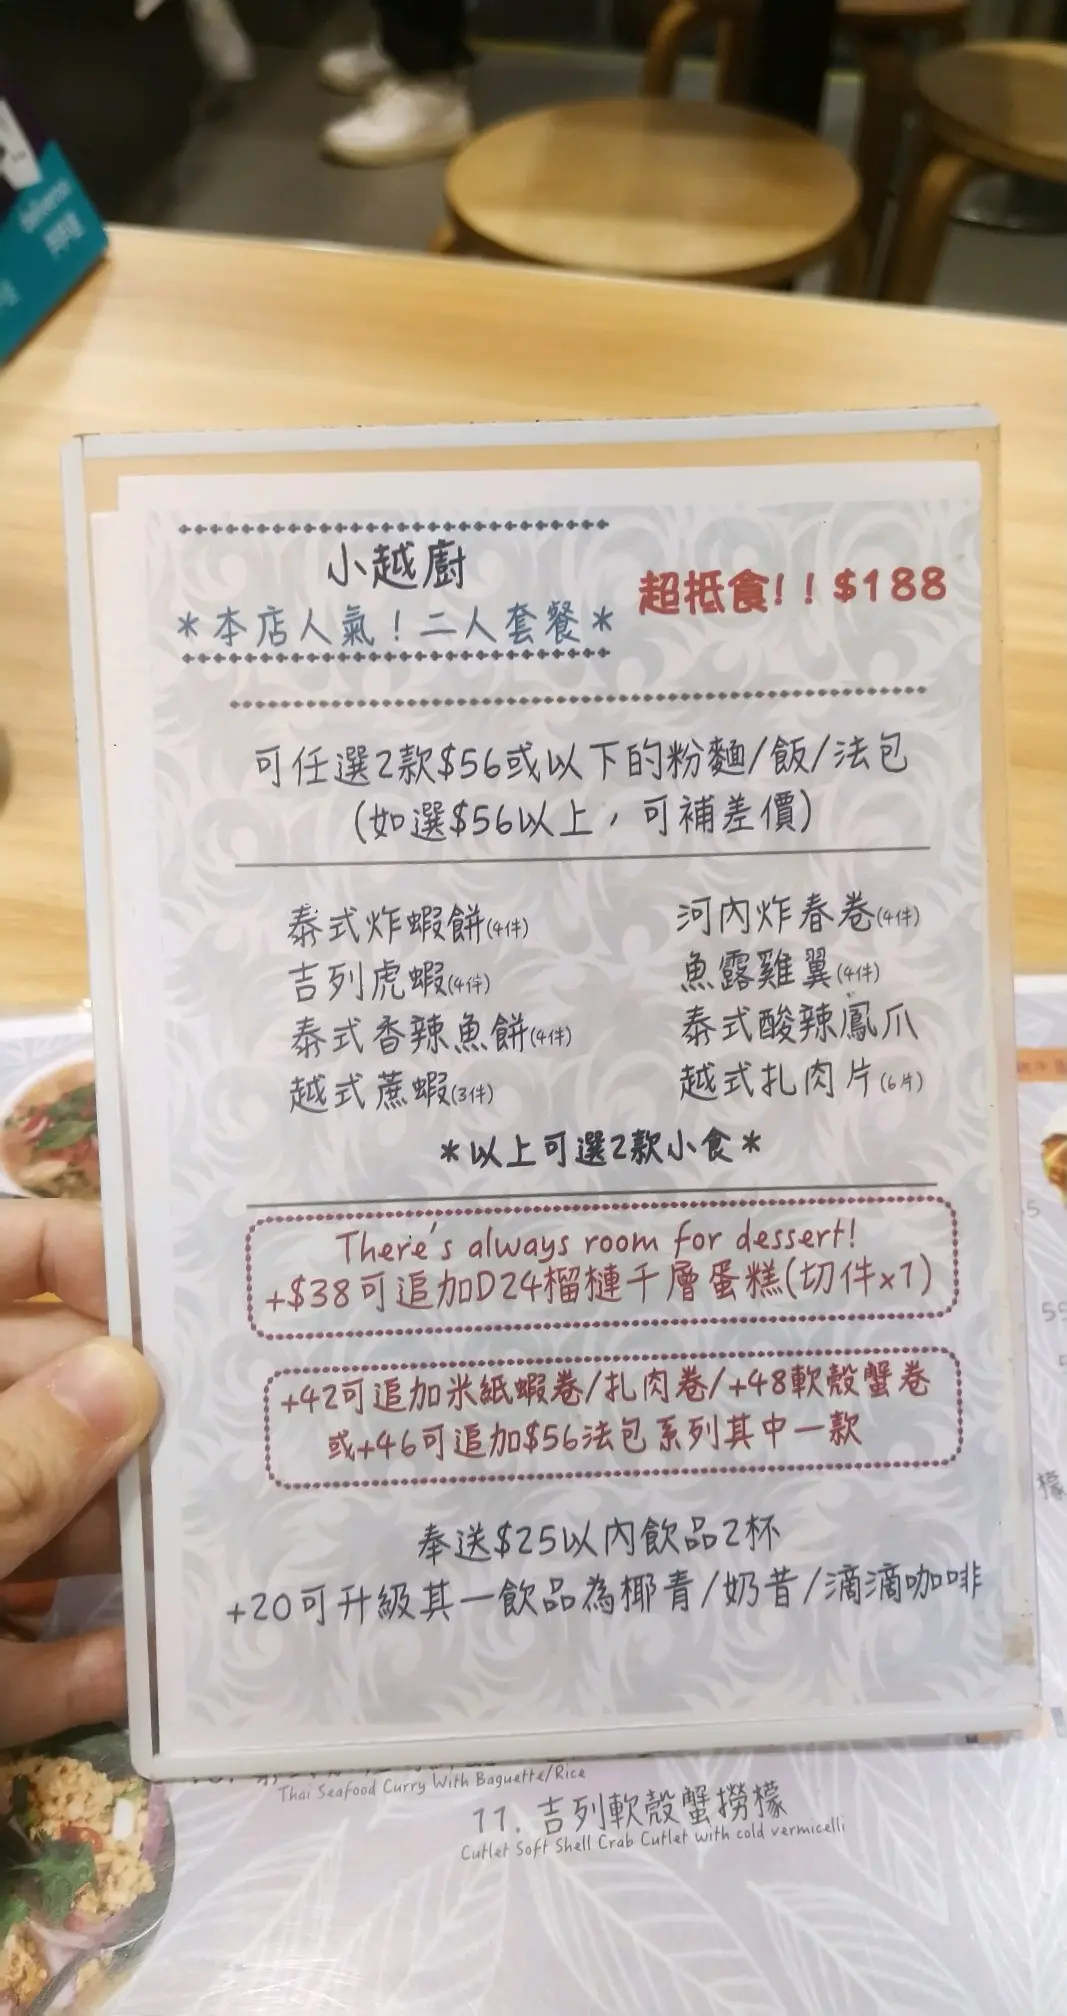 小越廚
*本店人氣！二人套餐*
超抵食!！$188
可任選2款$56或以下的粉麵/飯/法包
(如選$56以上，可補差價)
泰式炸蝦餅(4件)
河內炸春卷(4件)
吉列虎蝦(4件)
魚露雞翼(4件)
泰式香辣魚餅(4件)
泰式酸辣鳳爪
越式蔗蝦(3件)
越式扎肉片(6片)
*以上可選2款小食*
There's always room for dessert!
+$38可追加D24榴槤千層蛋糕(切件x1)
+42可追加米紙蝦卷/扎肉卷/+48軟殼蟹卷
或+46可追加$56法包系列其中一款
奉送$25以內飲品2杯
+20可升級其一飲品為椰青/奶昔/滴滴咖啡
Thai Seafood Curry With Baguette/Rice
11. 吉列軟殼蟹撈檬
Cutlet Soft Shell Crab Cutlet with cold vermicelli
檬